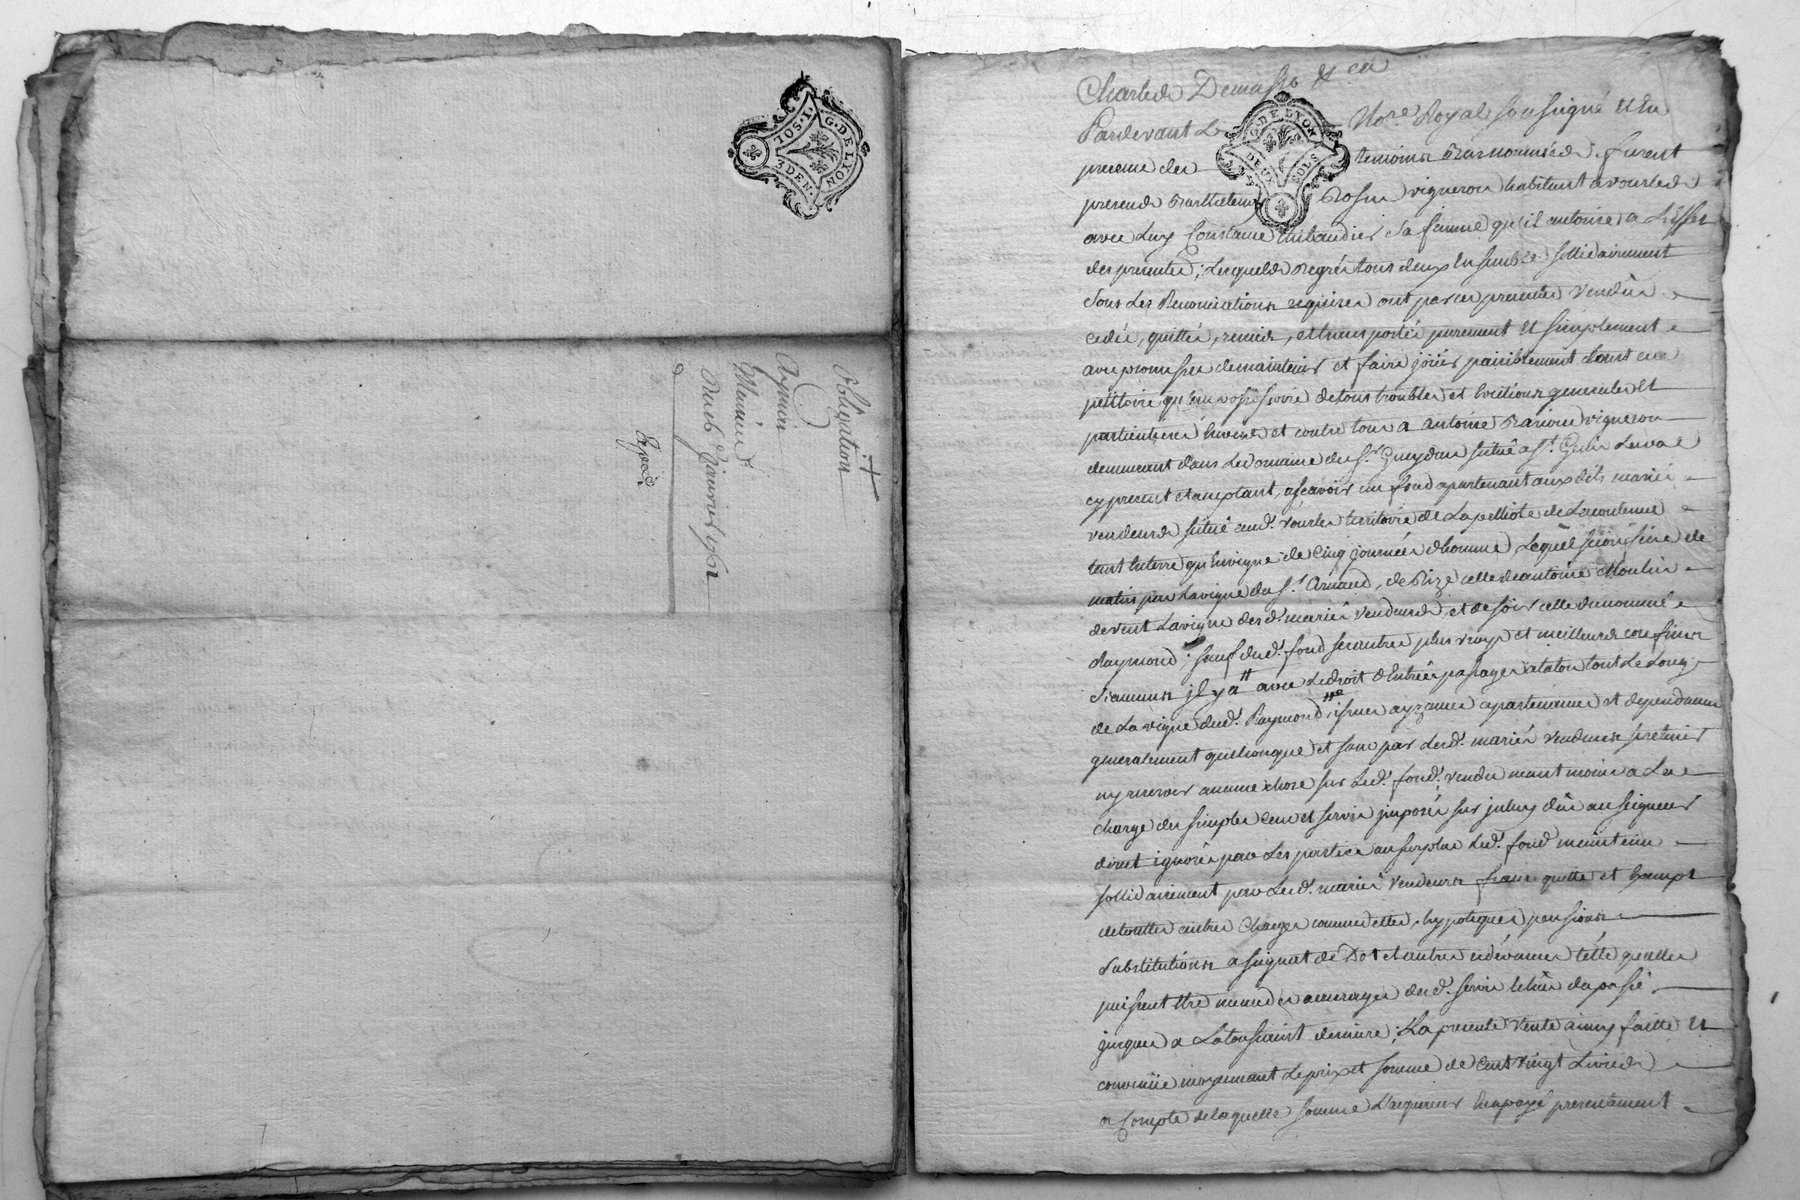 G. DE LYON
3 DEN.
Obligation
Aymin
du 16 Janvier 1762
Exped.
G. DE LYON
DEUX SOLS
Pardevant Le Nore. Royal soussigné et en
presence des temoins bas nommés furent
presents Barthelemy Rosier vigneron habitant a vourles
avec Luy Constance thibaudier sa femme qu'il autorise a L'effet
des presentes; Lesquels de gré tous deux Ensemble sollidairement
sous Les Renonciations requises ont par ces presentes vendû
cedé, quitté, remis, et transporté purement et simplement
avec promesses de maintenir et faire joüir paisiblement tant en
petitoire qu'en possessoire de tous troubles et Evictions generales et
particulieres Envers et contre tous a antoine vigneron
demeurant dans Le Domaine du Sr. Gueydan situé a St. Genis Laval
cy present et acceptant, asçavoir un fond apartenant aux dits mariés
vendeurs situé aud. vourles territoire de
tant En terre qu'En vigne de Cinq journées d'homme, Lequel se confine de
matin par La vigne du Sr. Arnaud, de Bize celle de antoine Moulin
de vent La vigne des d. mariés vendeurs, et de soir celle du nommé
Raymond; sauf dud. fond ses autres plus vrays et meilleurs confins
si aucuns il y a avec Le droit d'Entrée passage a talon tout Le Long
de La vigne dud. Raymond, issues ayzances apartenances et dependances
generalement quelconques et sans par Lesd. mariés vendeurs se retenir
ny reserver aucune chose sur Led. fond. vendu neantmoins a La
charge des simples Cens et servis imposés sur jceluy dûs au seigneur
direct ignoré par Les parties au surplus Led. fond maintenu
sollidairement par Lesd. mariés vendeurs franc quitte et Exempt
de touttes autres Charges comme dettes, hypoteques, pensions
substitutions assignat de Dot et autres redevances telle qu'elles
puissent Etre mêmes des arrerages dud. servis Echûs du passé
jusques a La toussaint derniere; La presente vente ainsy faitte et
convenüe moyennant Le prix et somme de Cent vingt Livres
a Compte de laquelle somme L'acquereur En a payé presentement